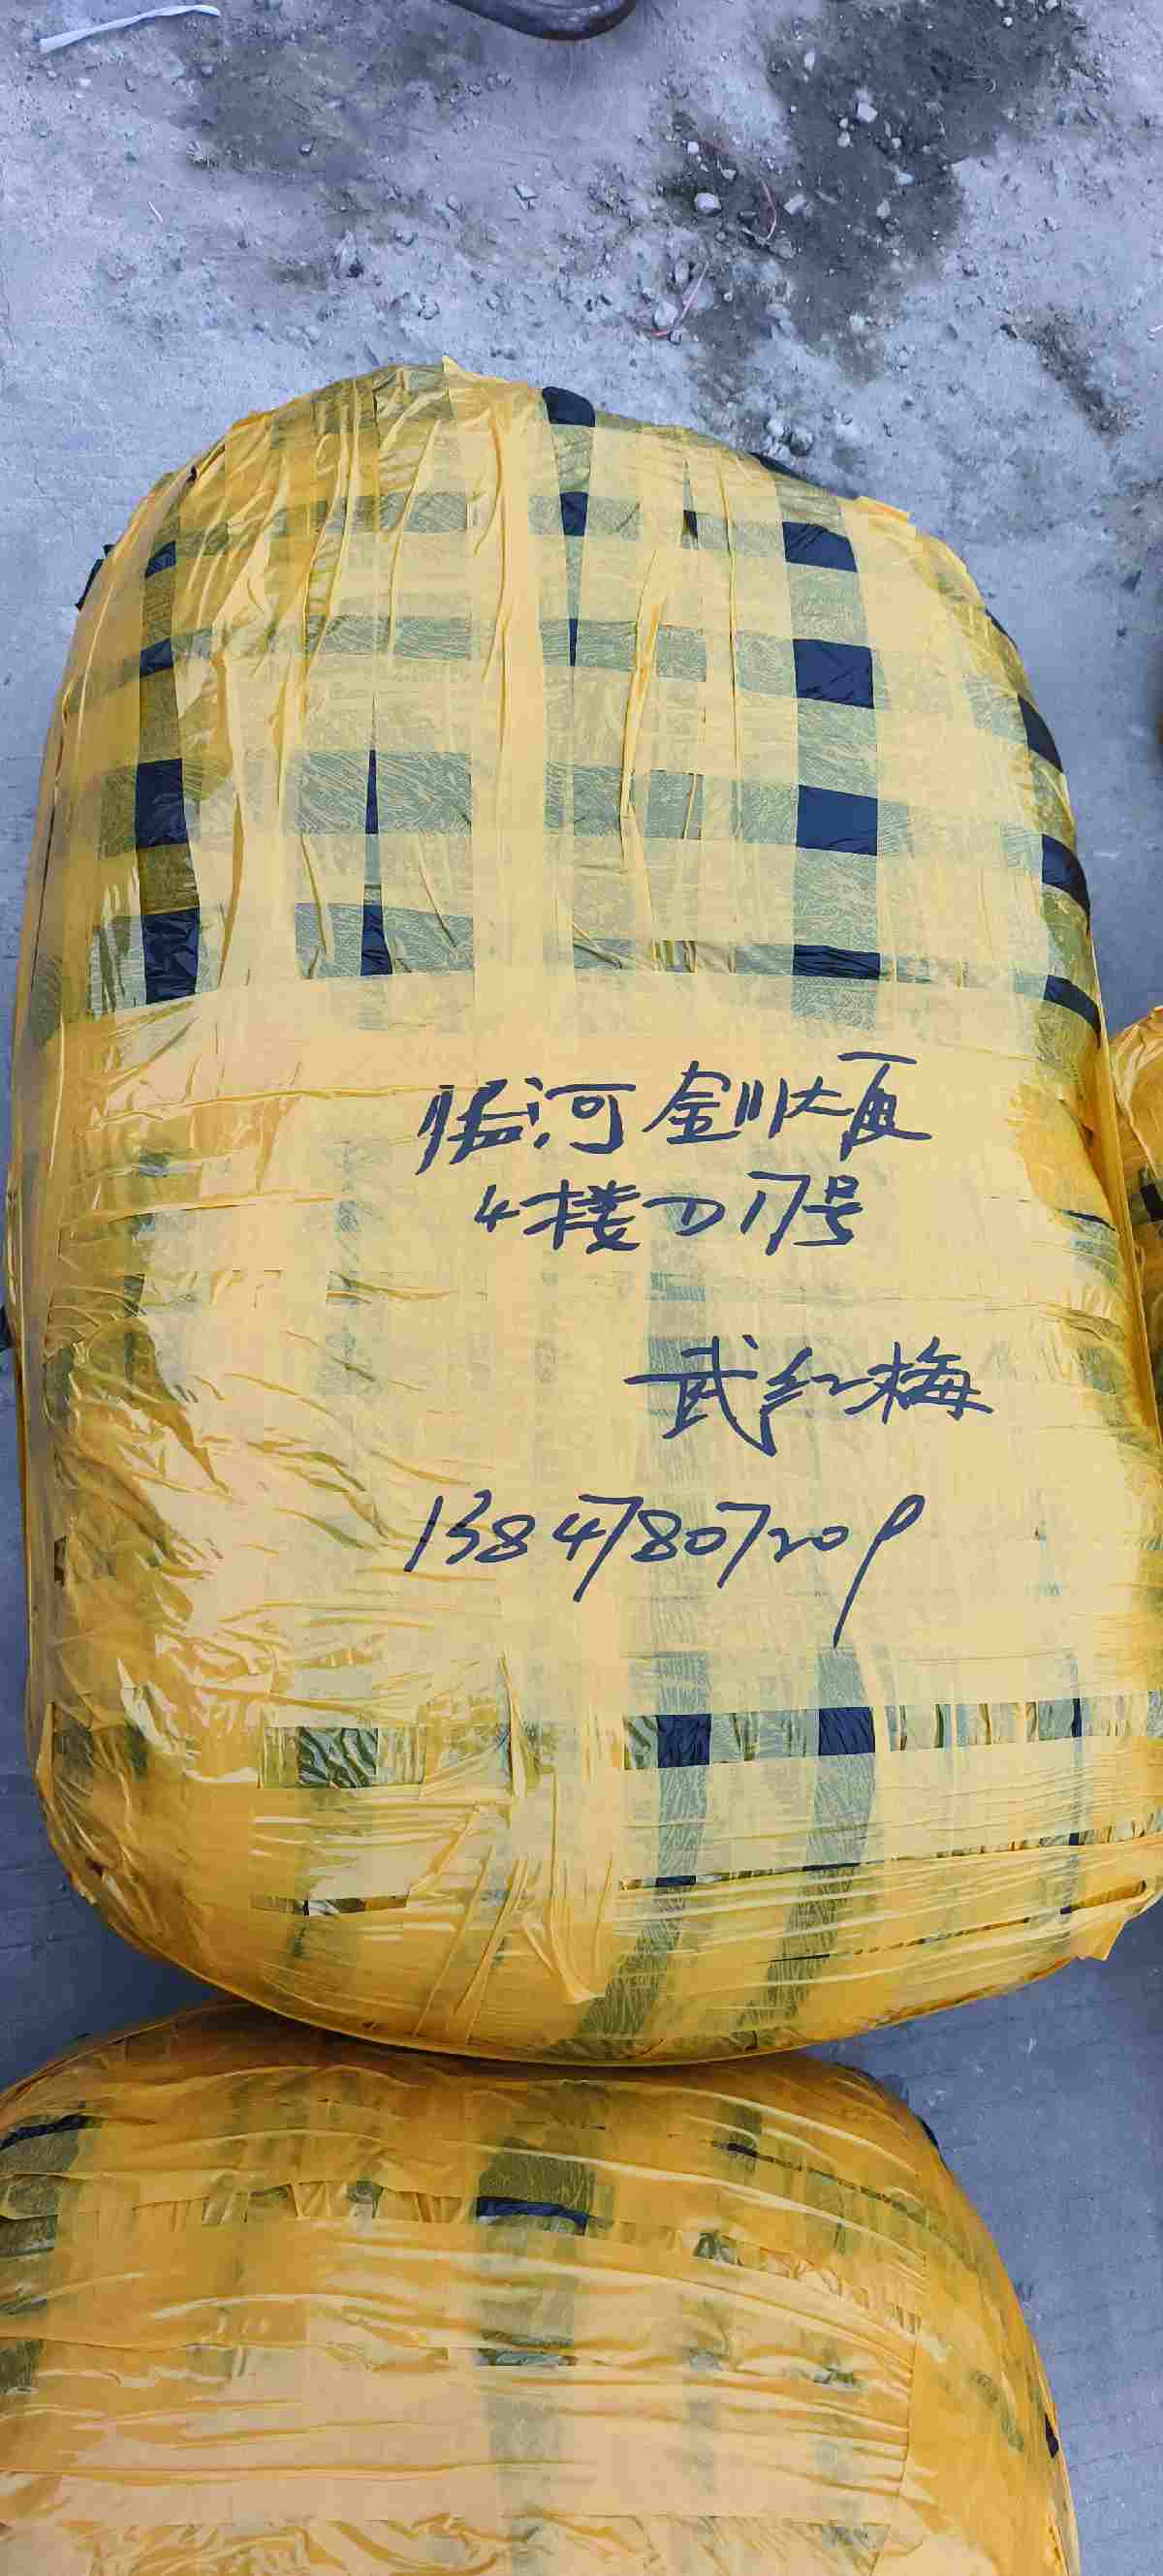 临河金川大厦
4楼D17号
武红梅
13847807209